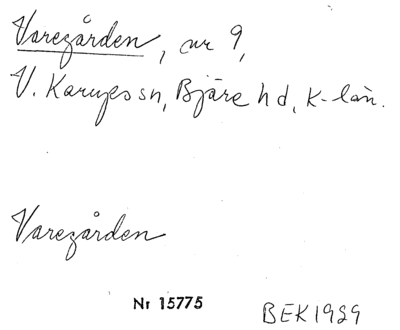 Varegården, nr 9,
V. Karups sn, Bjäre hd, K-län.
Varegården
Nr 15775
BEK 1989